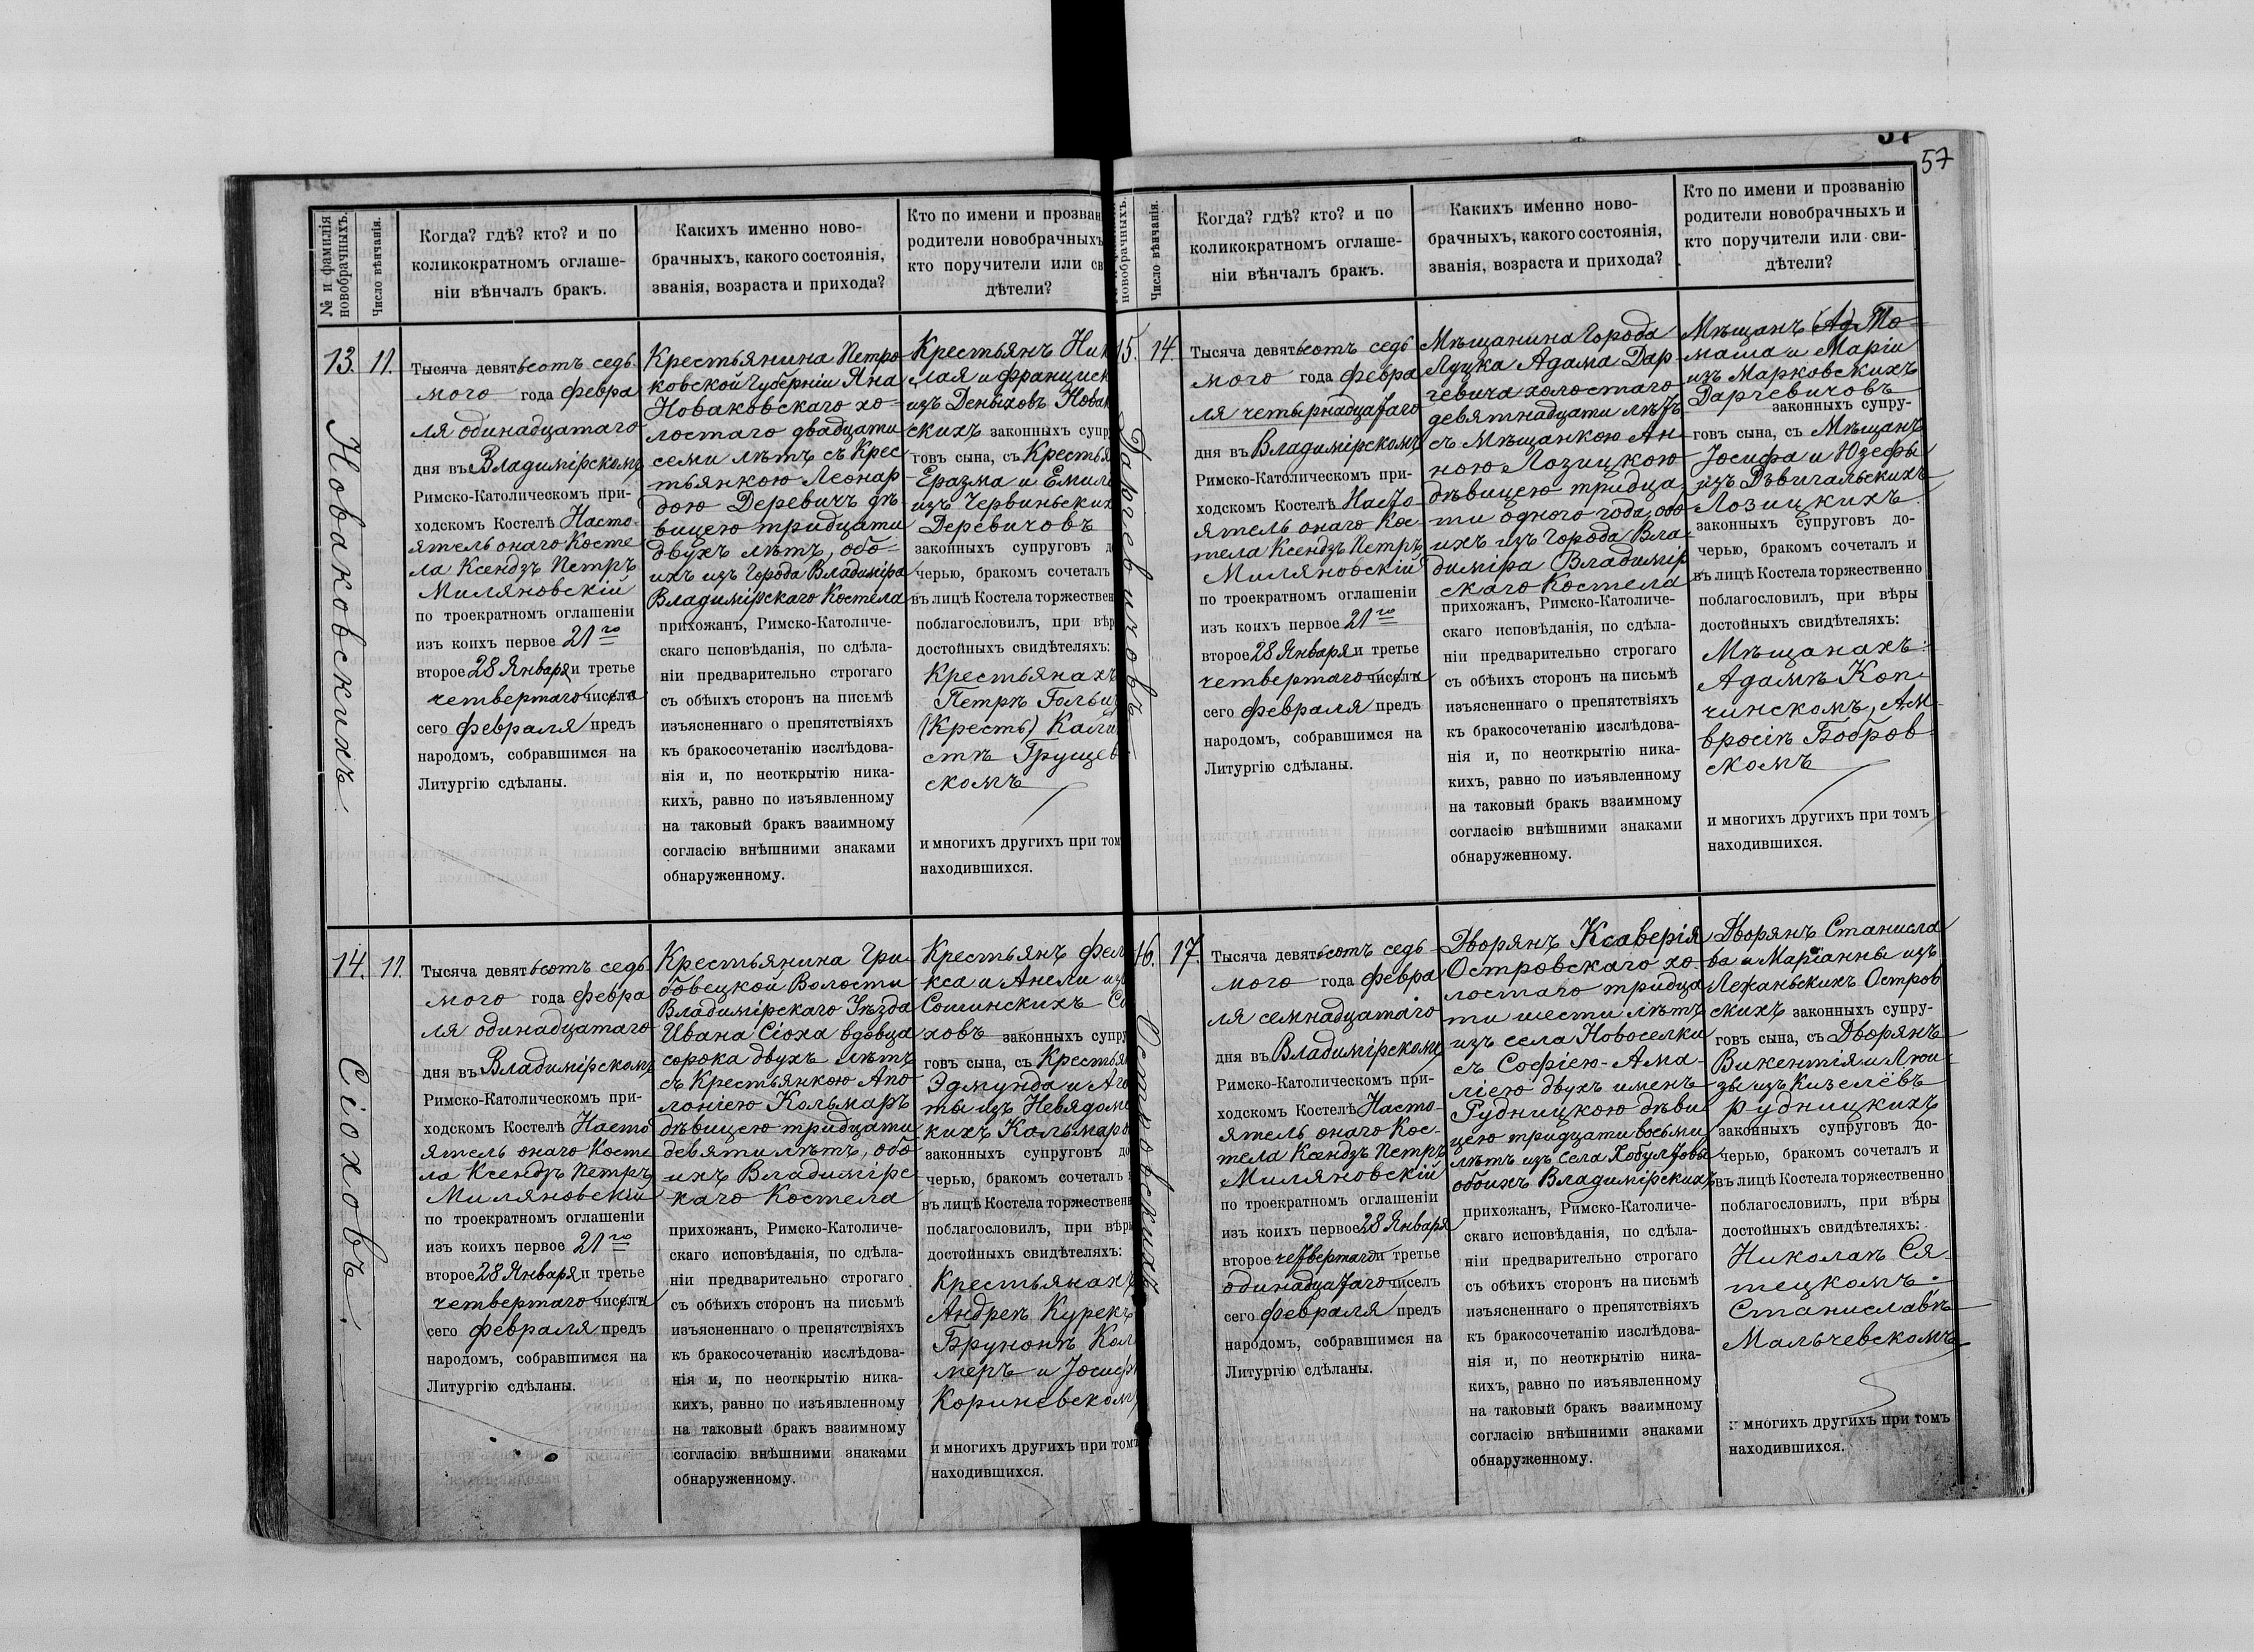 57
57
№ и фамилія
новобрачныхъ.
Число вѣнчанія.
Когда? гдѣ? кто? и по
коликократномъ оглаше-
ніи вѣнчалъ бракъ.
Каκихъ именно ново-
брачныхъ, какого состоянія,
званія, возраста и прихода?
Кто по имени и прозван
родители новобрачныхъ
кто поручители или св
дѣтели?
13.
11.
Новаковскихъ.
Тысяча девятьсотъ седь-
мого года февра
ля одинадцатаго
дня въ Владимірскомъ
Римско-Католическомъ при-
ходскомъ Костелѣ Насто-
ятель онаго Косте
ла Ксендзъ Петръ
Миляновскій
по троекратномъ оглашеніи
изъ коихъ первое 21го
второе 28 Января и третье
четвертаго числа
сего февраля предъ
народомъ, собравшимся на
Литургію сдѣланы.
Крестьянина Петро-
ковской Губерніи Яна
Новаковскаго хо-
лостаго двадцати
семи лѣтъ съ Крес
тьянкою Леонар
дою Деревичъ дѣ
вицею тридцати
двухъ лѣтъ, обо-
ихъ изъ Города Владиміра
Владимірскаго Костела
прихожанъ, Римско-Католиче-
скаго исповѣданія, по сдѣла-
ніи предварительно строгаго
съ обѣихъ сторонъ на письмѣ
изъясненнаго о препятствіяхъ
къ бракосочетанію изслѣдова-
нія и, по неоткрытію ника-
кихъ, равно по изъявленному
на таковый бракъ взаимному
согласію внѣшними знаками
обнаруженному.
Крестьянъ Ник
лая и Франциск
изъ Деныховъ Новак
скихъ законныхъ супр
говъ сына, съ Крестья
Еразма и Емил
изъ Червиньских
Деревичовъ
законныхъ супруговъ д
черью, бракомъ сочеталъ
въ лицѣ Костела торжествен
поблагословилъ, при вѣр
достойныхъ свидѣтеляхъ:
Крестьянахъ
Петрѣ Гольц
(Кресть) Кали
стѣ Грущев
скомъ
и многихъ другихъ при том
находившихся.
14.
11.
Сіоховъ.
Тысяча девятьсотъ седь
мого года февра
ля одинадцатаго
дня въ Владимірскомъ
Римско-Католическомъ при-
ходскомъ Костелѣ Насто
ятель онаго Косте
ла Ксендзъ Петръ
Миляновскій
по троекратномъ оглашеніи
изъ коихъ первое 21го
второе 28 Января и третье
четвертаго числа
сего февраля предъ
народомъ, собравшимся на
Литургію сдѣланы.
Крестьянина Гри-
бовецкой Волости
Владимірскаго Уѣзда
Ивана Сіоха вдовца
сорока двухъ лѣтъ
съ Крестьянкою Апо
лоніею Кольмаръ
дѣвицею тридцати
девяти лѣтъ, обо
ихъ Владимірс
каго Костела
прихожанъ, Римско-Католиче-
скаго исповѣданія, по сдѣла-
ніи предварительно строгаго
съ обѣихъ сторонъ на письмѣ
изъясненнаго о препятствіяхъ
къ бракосочетанію изслѣдова-
нія и, по неоткрытію ника-
кихъ, равно по изъявленному
на таковый бракъ взаимному
согласію внѣшними знаками
обнаруженному.
Крестьянъ Фел
кса и Анели изъ
Сошинскихъ Сі
ховъ законныхъ супру
говъ сына, съ Крестья
Эдмунда и Ага
ты изъ Невядомс
кихъ Кольмаро
законныхъ супруговъ до
черью, бракомъ сочеталъ
въ лицѣ Костела торжествен
поблагословилъ, при вѣр
достойныхъ свидѣтеляхъ:
Крестьянахъ
Андреѣ Курекъ
Брунонѣ Кол
меръ и Іосиф
Кориневском
и многихъ другихъ при томъ
находившихся.
новобрачныхъ.
Число вѣнчанія.
Когда? гдѣ? кто? и по
коликократномъ оглаше-
ніи вѣнчалъ бракъ.
Какихъ именно ново-
брачныхъ, какого состоянія,
званія, возраста и прихода?
Кто по имени и прозванію
родители новобрачныхъ и
кто поручители или сви-
дѣтели?
15.
14.
Дарчевичовъ.
Тысяча девятьсотъ седь
мого года февра
ля четырнадцатаго
дня въ Владимірскомъ
Римско-Католическомъ при-
ходскомъ Костелѣ Насто-
ятель онаго Кос-
тела Ксендзъ Петръ
Миляновскій
по троекратномъ оглашеніи
изъ коихъ первое 21го
второе 28 Января и третье
четвертаго числа
сего февраля предъ
народомъ, собравшимся на
Литургію сдѣланы.
Мѣщанина Города
Луцка Адама Дар-
чевича холостаго
девятнадцати лѣтъ
съ Мѣщанкою Ан-
ною Лозицкою
дѣвицею тридца-
ти одного года, обо
ихъ изъ Города Вла-
диміра Владимір
скаго Костела
прихожанъ, Римско-Католиче-
скаго исповѣданія, по сдѣла-
ніи предварительно строгаго
съ обѣихъ сторонъ на письмѣ
изъясненнаго о препятствіяхъ
къ бракосочетанію изслѣдова-
нія и, по неоткрытію ника-
кихъ, равно по изъявленному
на таковый бракъ взаимному
согласію внѣшними знаками
обнаруженному.
Мѣщанъ (Ад) То-
маша и Маріи
изъ Марковскихъ
Дарчевичовъ
законныхъ супру-
говъ сына, съ Мѣщанъ
Іосифа и Юзефы
изъ Дѣвичальскихъ
Лозицкихъ
законныхъ супруговъ до-
черью, бракомъ сочеталъ и
въ лицѣ Костела торжественно
поблагословилъ, при вѣры
достойныхъ свидѣтеляхъ:
Мѣщанахъ:
Адамѣ Коп-
чинскомъ, Ам-
вросіѣ Бобров-
скомъ
и многихъ другихъ при томъ
находившихся.
16.
17.
Островскихъ
Тысяча девятьсотъ седь-
мого года февра
ля семнадцатаго
дня въ Владимірскомъ
Римско-Католическомъ при-
ходскомъ Костелѣ Насто-
ятель онаго Кос-
тела Ксендзъ Петръ
Миляновскій
по троекратномъ оглашеніи
изъ коихъ первое 28 Января
второе четвертаго и третье
одинадцатаго чиселъ
сего февраля предъ
народомъ, собравшимся на
Литургію сдѣланы.
Дворянъ Ксаверія
Островскаго хо-
лостаго тридца
ти шести лѣтъ
изъ села Новоселки
съ Софіею-Ама-
ліею двухъ именъ
Рудницкою дѣви
цею тридцати восьми
лѣтъ изъ села Хобултовы
обоихъ Владимірскихъ
прихожанъ, Римско-Католиче-
скаго исповѣданія, по сдѣла-
ніи предварительно строгаго
съ обѣихъ сторонъ на письмѣ
изъясненнаго о препятствіяхъ
къ бракосочетанію изслѣдова-
нія и, по неоткрытію ника-
кихъ, равно по изъявленному
на таковый бракъ взаимному
согласію внѣшними знаками
обнаруженному.
Дворянъ Станисла
ва и Маріанны изъ
Лежаньскихъ Остров
скихъ законныхъ супру-
говъ сына, съ Дворянъ
Викентія и Луи-
зы изъ Кизелёвъ
Рудницкихъ
законныхъ супруговъ до-
черью, бракомъ сочеталъ и
въ лицѣ Костела торжественно
поблагословилъ, при вѣры
достойныхъ свидѣтеляхъ:
Николаѣ Ся-
тецкомъ.
Станиславѣ
Мальчевскомъ
и многихъ другихъ при томъ
находившихся.